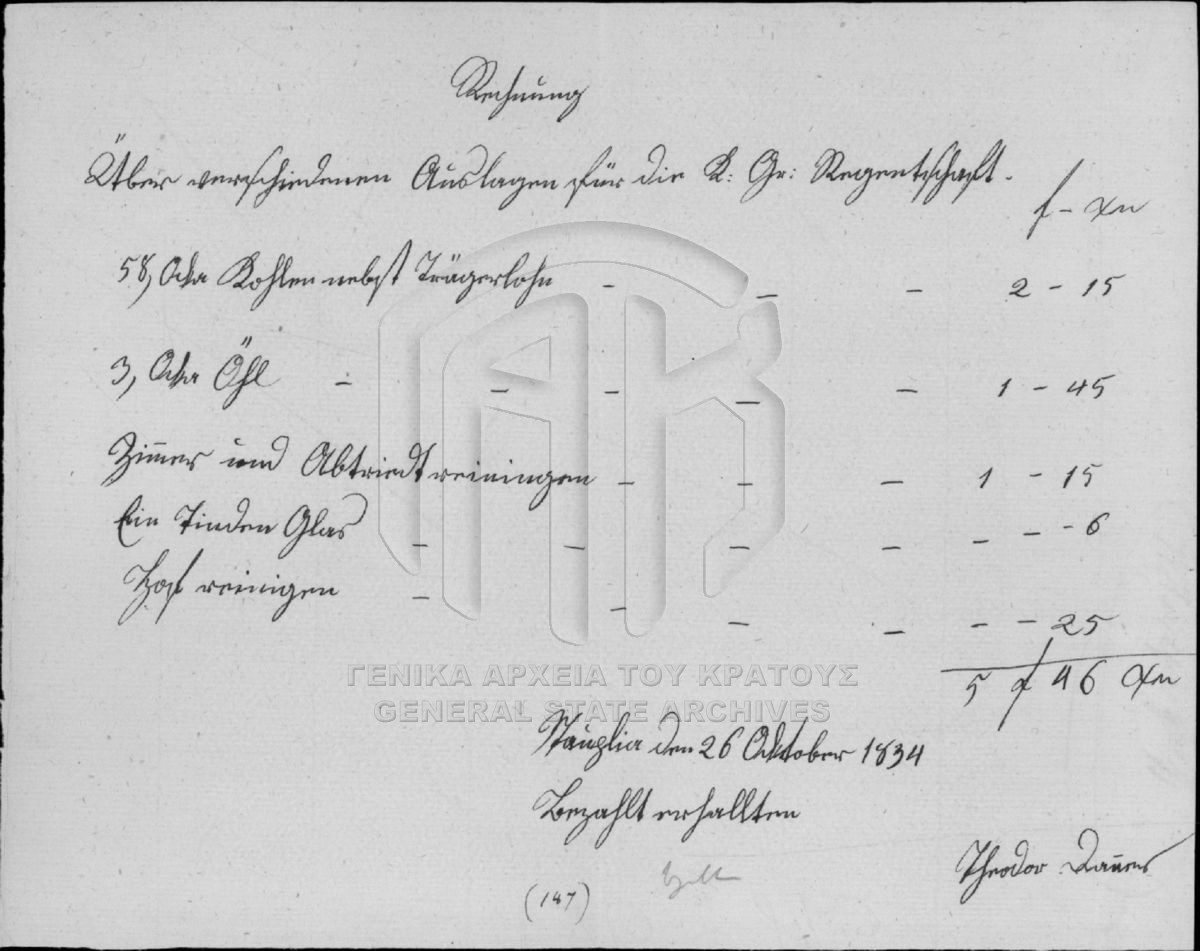 Rechnung
Über verschiedenen Auslagen für die K: Gr: Regentschaft.
f - Xr
58, Ocka Kohlen nebst Trägerlohn - - - 2 - 15
3, Ocka Öhl - - - - - 1 - 45
Zimmer und Abtriedt reiningen - - - 1 - 15
Ein Tinden Glas - - - - - - - 6
Hof reinigen - - - - - - 25
5 f 46 Xr
ΓΕΝΙΚΑ ΑΡΧΕΙΑ ΤΟΥ ΚΡΑΤΟΥΣ
GENERAL STATE ARCHIVES
Nauplia den 26 Oktober 1834
Bezahlt erhallten
Theodor
(147)